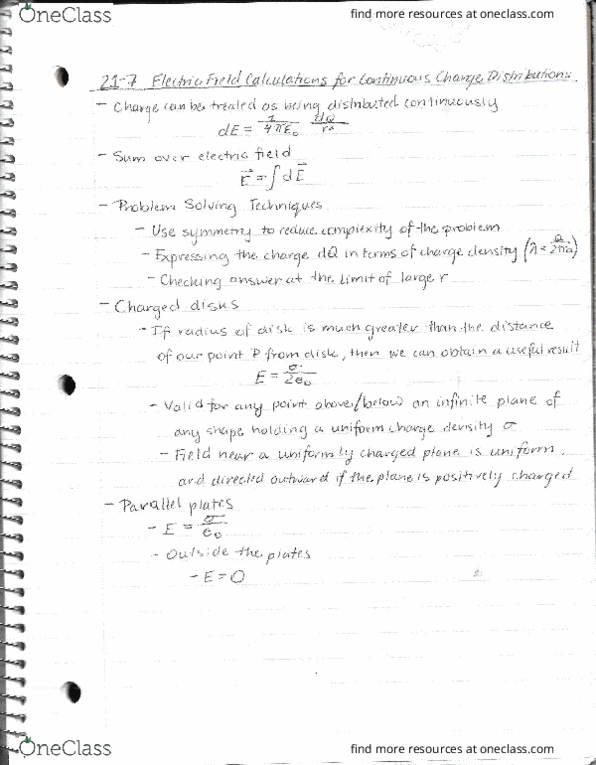 OneClass find more resources at oneclass.com
21-7 Electric Field Calculations for Continuous Charge Distributions
- Charge can be treated as being distributed continuously
dE = 1/4πε₀ dQ/r²
- Sum over electric field
E⃗ = ∫ dE⃗
- Problem Solving Techniques
- Use symmetry to reduce complexity of the problem
- Expressing the charge dQ in terms of charge density (λ = Q/2πa)
- Checking answer at the limit of large r
- Charged disks
- If radius of disk is much greater than the distance
of our point P from disk, then we can obtain a useful result
E = σ/2ε₀
- Valid for any point above/below an infinite plane of
any shape holding a uniform charge density σ
- Field near a uniformly charged plane is uniform,
and directed outward if the plane is positively charged
- Parallel plates
- E = σ/ε₀
- Outside the plates
- E = 0
OneClass find more resources at oneclass.com